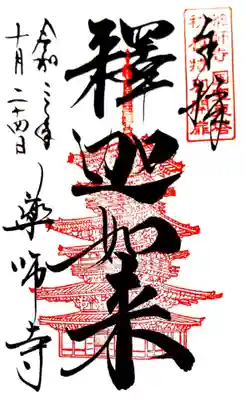 奉拝
釋迦如来
令和三年
十月二十四日
薬師寺